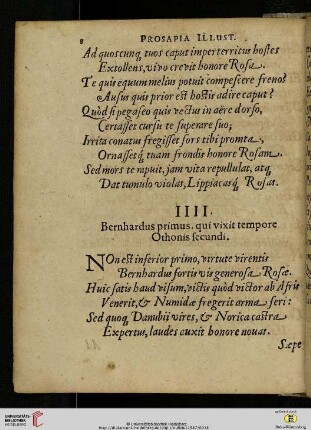 8 PROSAPIA ILLUST.
Ad quoscunq tuos caput imperterritus hostes
Extollens, vivo crevit honore Rosa.
Te quis equum melius potuit compescere freno?
Ausus quis prior est hostis adire caput?
Quòd si pegaseo quis vectus in aëre dorso,
Certasset cursu te superare suo;
Irrita conatus fregisset fors tibi promta,
Ornasset q; tuam frondis honore Rosam.
Sed mors te rapuit, jam vita repullulat, atq
Dat tumulo violas, Lippiacasq; Rosas.
IIII.
Bernhardus primus, qui vixit tempore
Othonis secundi.
NOn est inferior primo, virtute virentis
Bernhardus fortis vis generosa Rosæ.
Huic satis haud visum, victis quòd victor ab Afris
Venerit, & Numidæ fregerit arma feri:
Sed quoq Danubii vires, & Norica castra
Expertus, laudes auxit honore novas.
Sæpe
UNIVERSITÄTS-
BIBLIOTHEK
HEIDELBERG